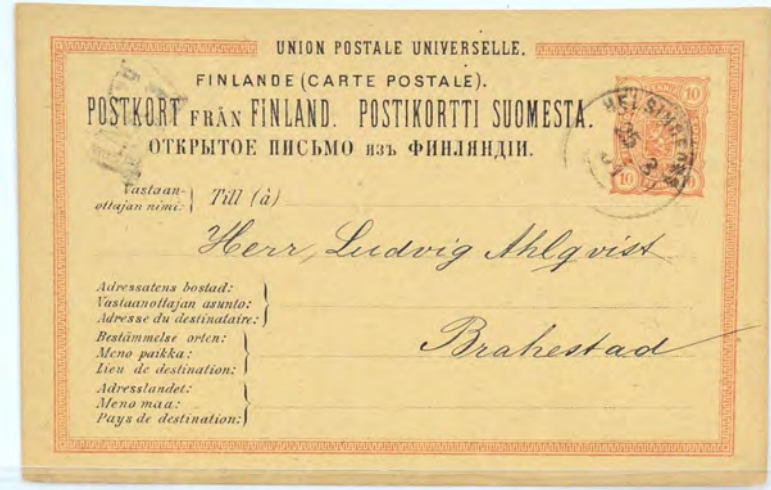 UNION POSTALE UNIVERSELLE.
FINLANDE (CARTE POSTALE).
POSTKORT FRÅN FINLAND. POSTIKORTTI SUOMESTA.
ОТКРЫТОЕ ПИСЬМО изъ ФИНЛЯНДІИ.
10 10
10 10
HELSINGFORS
25 3
Vastaan-
ottajan nimi: Till (à)
Herr, Ludvig Ahlqvist
Adressatens bostad:
Vastaanottajan asunto:
Adresse du destinataire:
Brahestad
Bestämmelse orten:
Meno paikka:
Lieu de destination:
Adresslandet:
Meno maa:
Pays de destination: